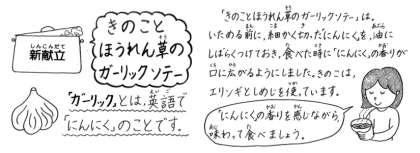 新献立
きのこと
ほうれん草の
ガーリックソテー
「ガーリック」とは、英語で
「にんにく」のことです。
「きのことほうれん草のガーリックソテー」は、
いためる前に、細かくきった「にんにく」を、油に
しばらくつけておき、食べた時に「にんにく」の香りが
口に広がるようにしました。きのこは、
エリンギとしめじを使っています。
「にんにく」の香りを感じながら、
味わって食べましょう。